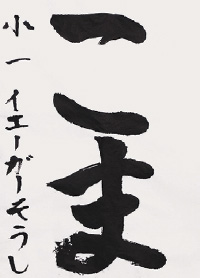 こま
小一 イエーガーそうし